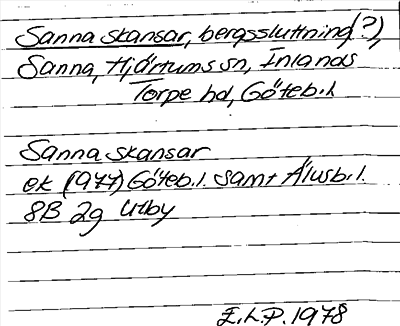 Sanna skansar, bergssluttning(?),
Sanna, Hjärtums sn, Inlands
Torpe hd, Göteb.l.
Sanna skansar
ek (1977) Göteb.l. samt Älvsb.l.
8B 2g Utby
E.L.P. 1978